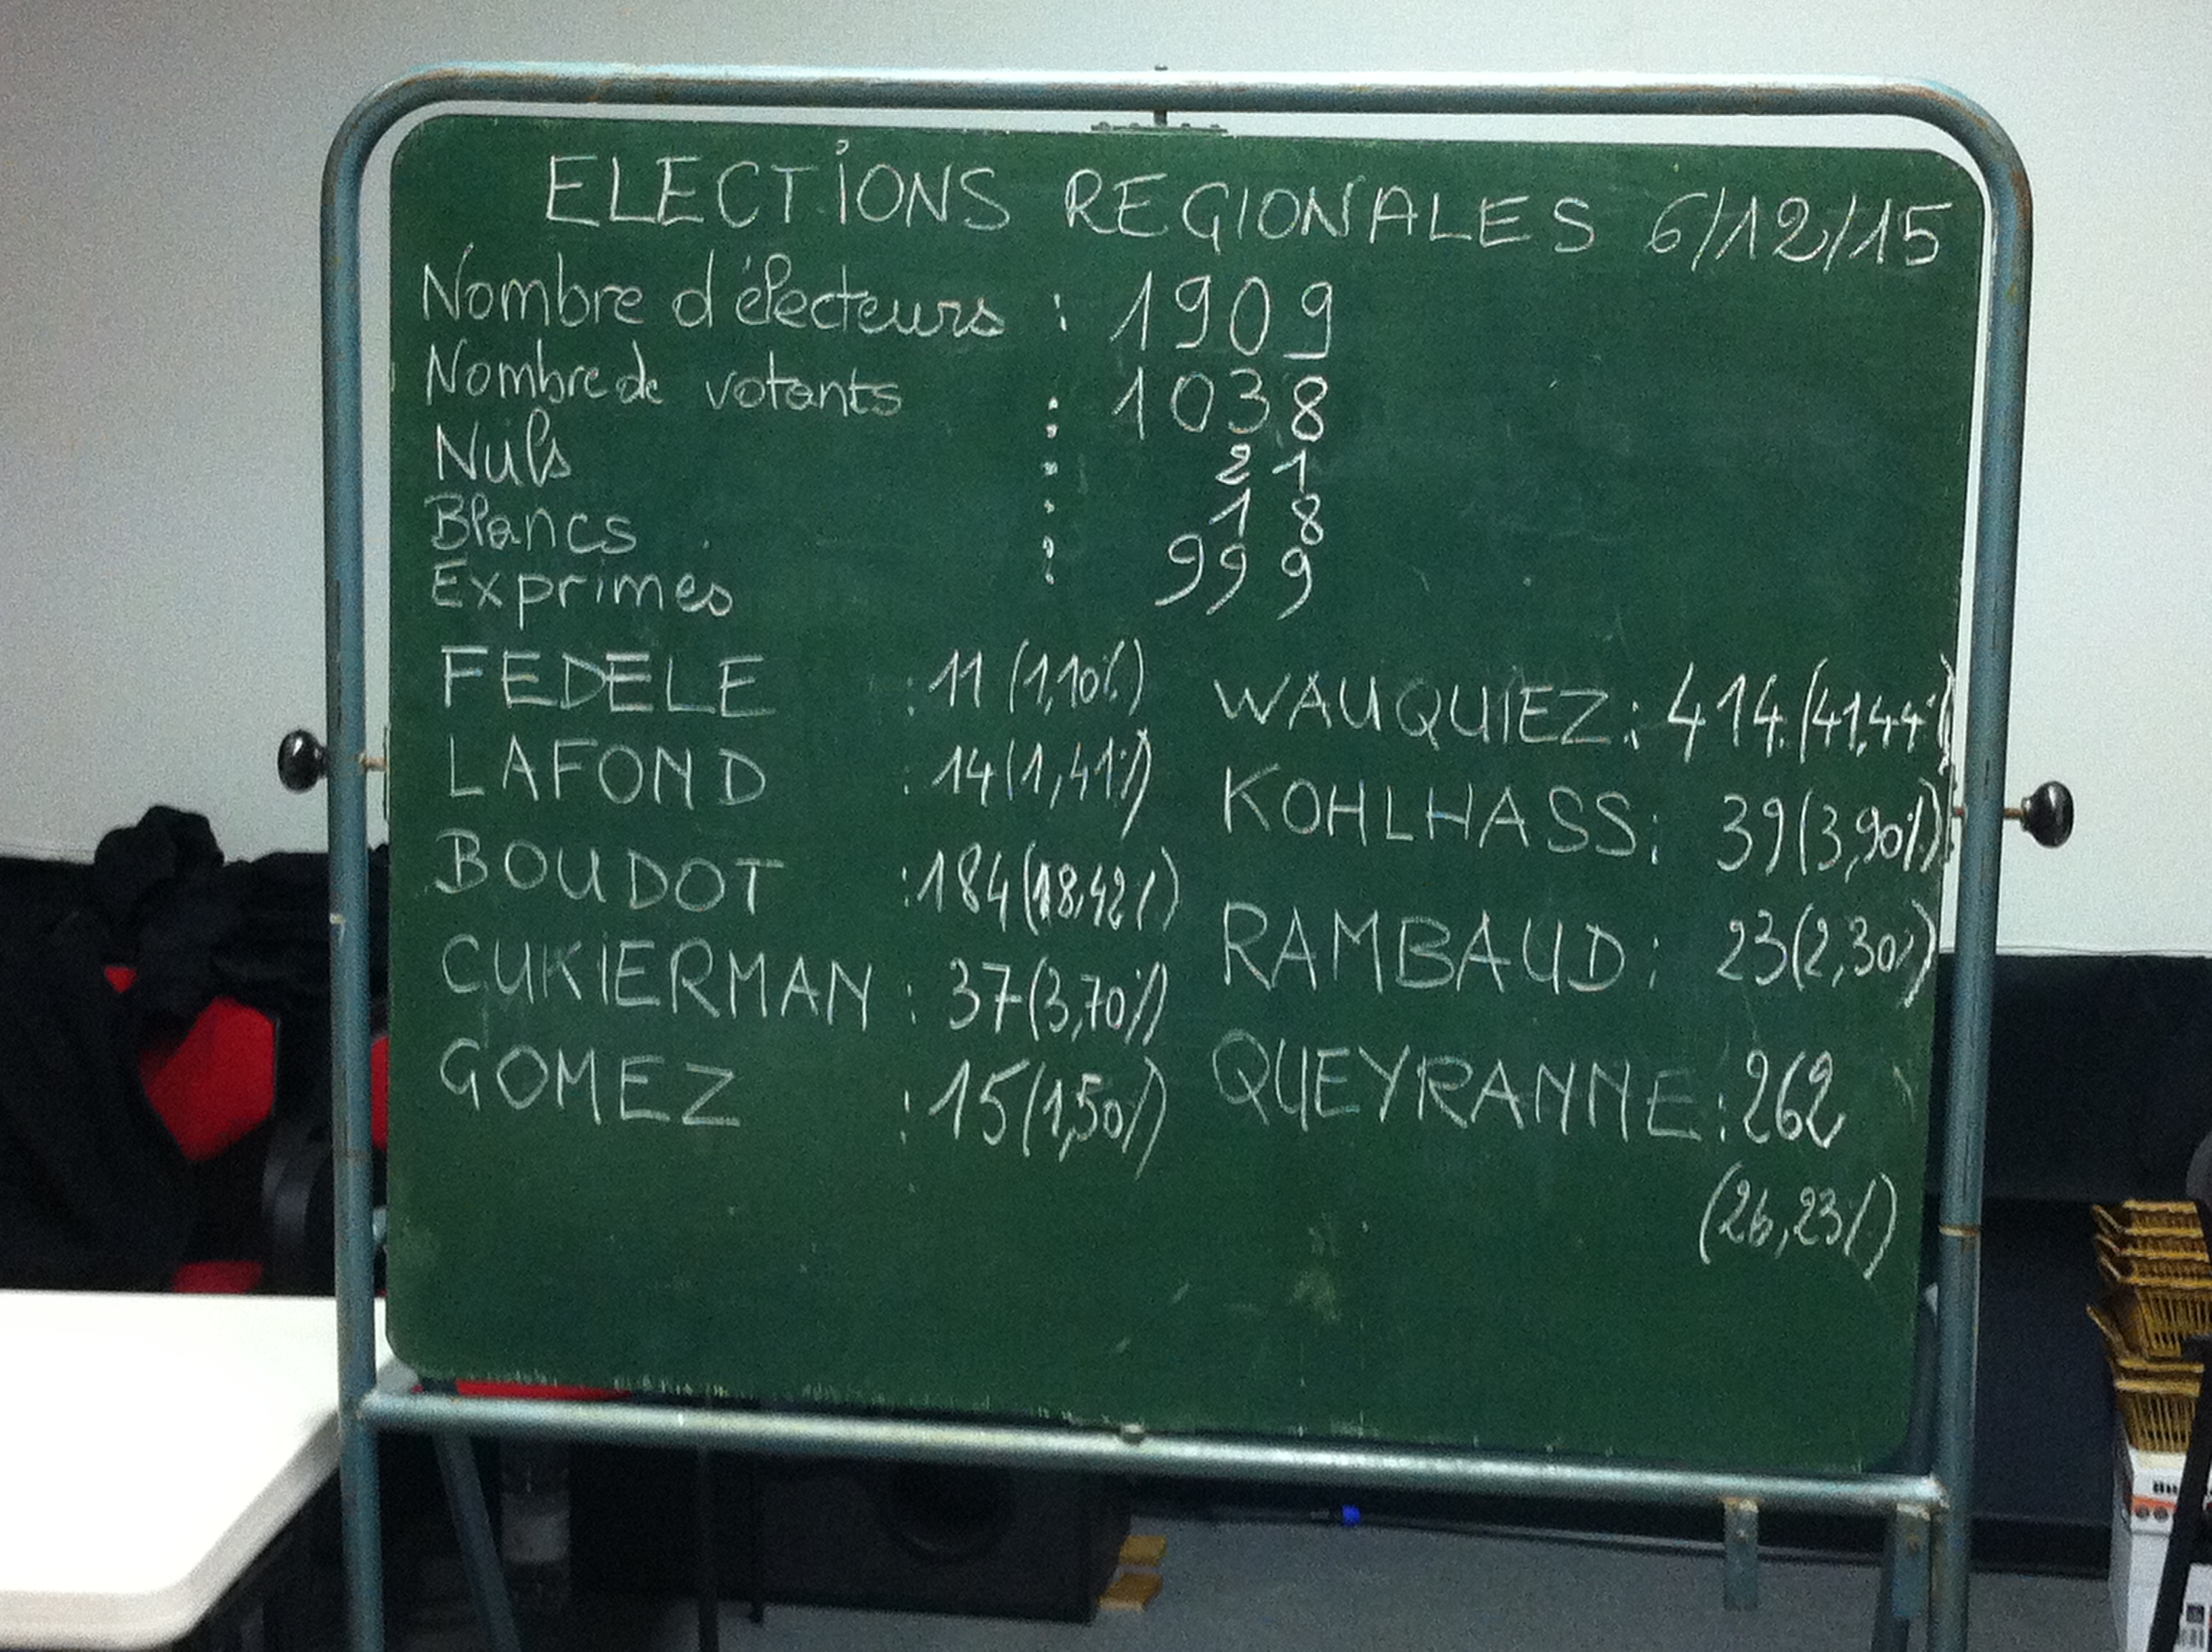 ELECTIONS REGIONALES 6/12/15
Nombre d'électeurs : 1909
Nombre de votants : 1038
Nuls : 21
Blancs : 18
Exprimés : 999
FEDELE : 11 (1,10%)
LAFOND : 14 (1,41%)
BOUDOT : 184 (18,42%)
CUKIERMAN : 37 (3,70%)
GOMEZ : 15 (1,50%)
WAUQUIEZ : 414 (41,44%)
KOHLHASS : 39 (3,90%)
RAMBAUD : 23 (2,30%)
QUEYRANNE : 262
(26,23%)